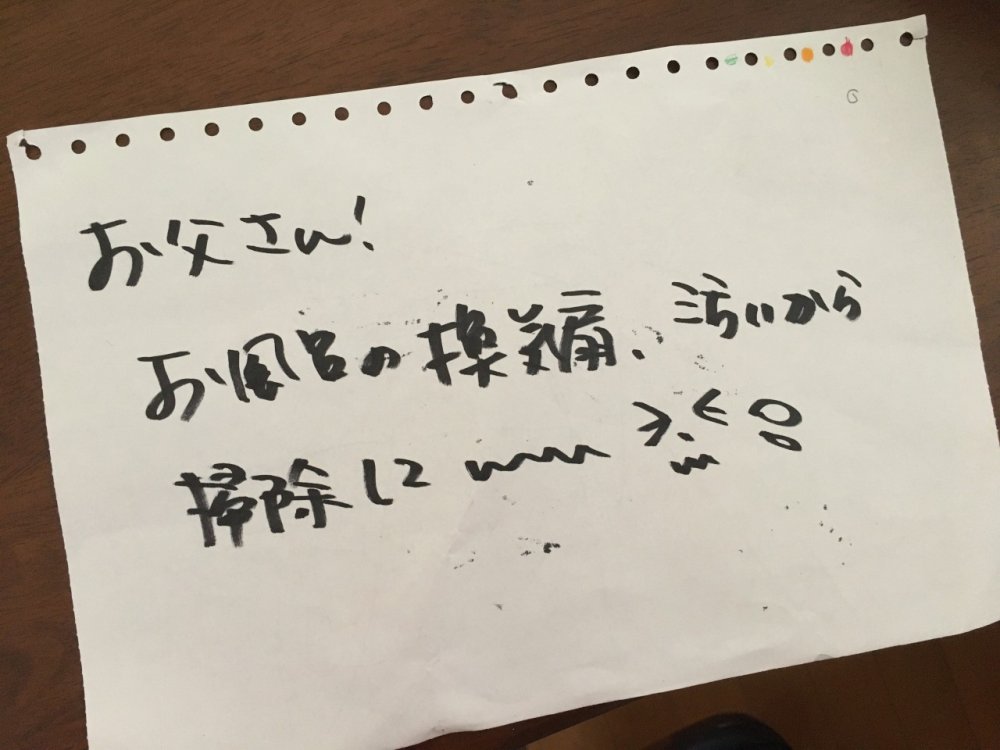 お父さん!
お風呂の換気扇、汚いから
掃除して